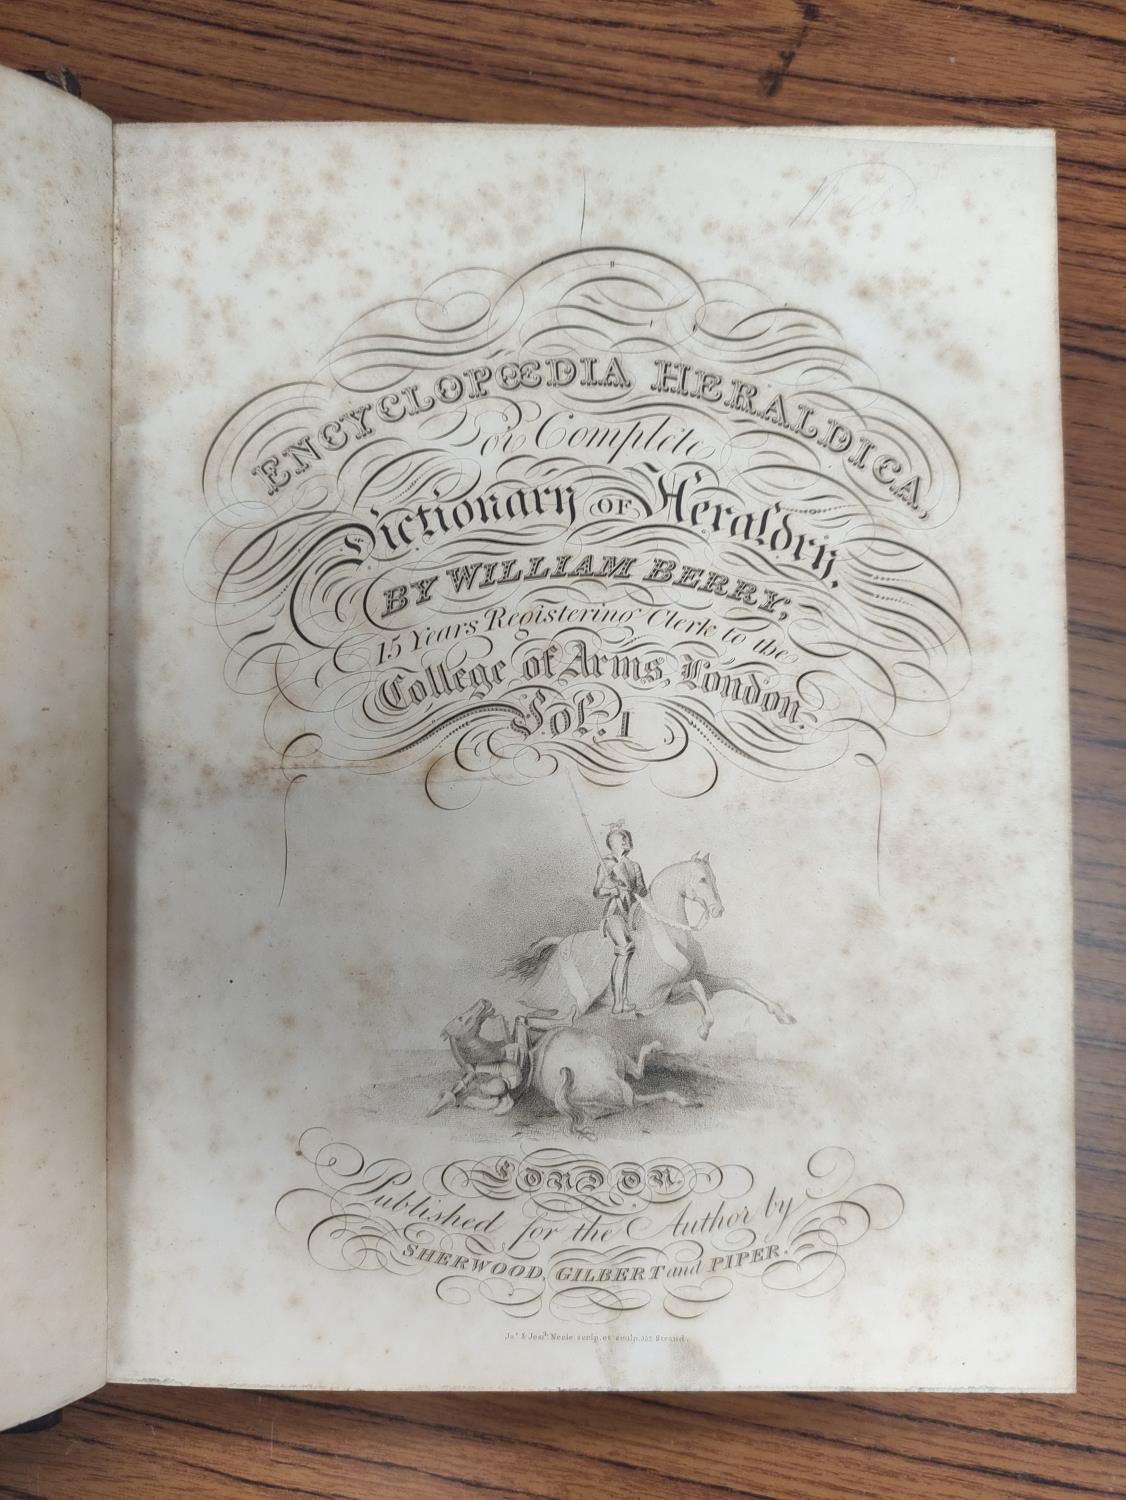 ENCYCLOPŒDIA HERALDICA,
or Complete
Dictionary OF Heraldry,
BY WILLIAM BERRY,
15 Years Registering Clerk to the
College of Arms, London.
Vol. 1
LONDON.
Published for the Author by
SHERWOOD, GILBERT and PIPER.
Jas. & Josh. Neele scrip. et sculp. 352 Strand.